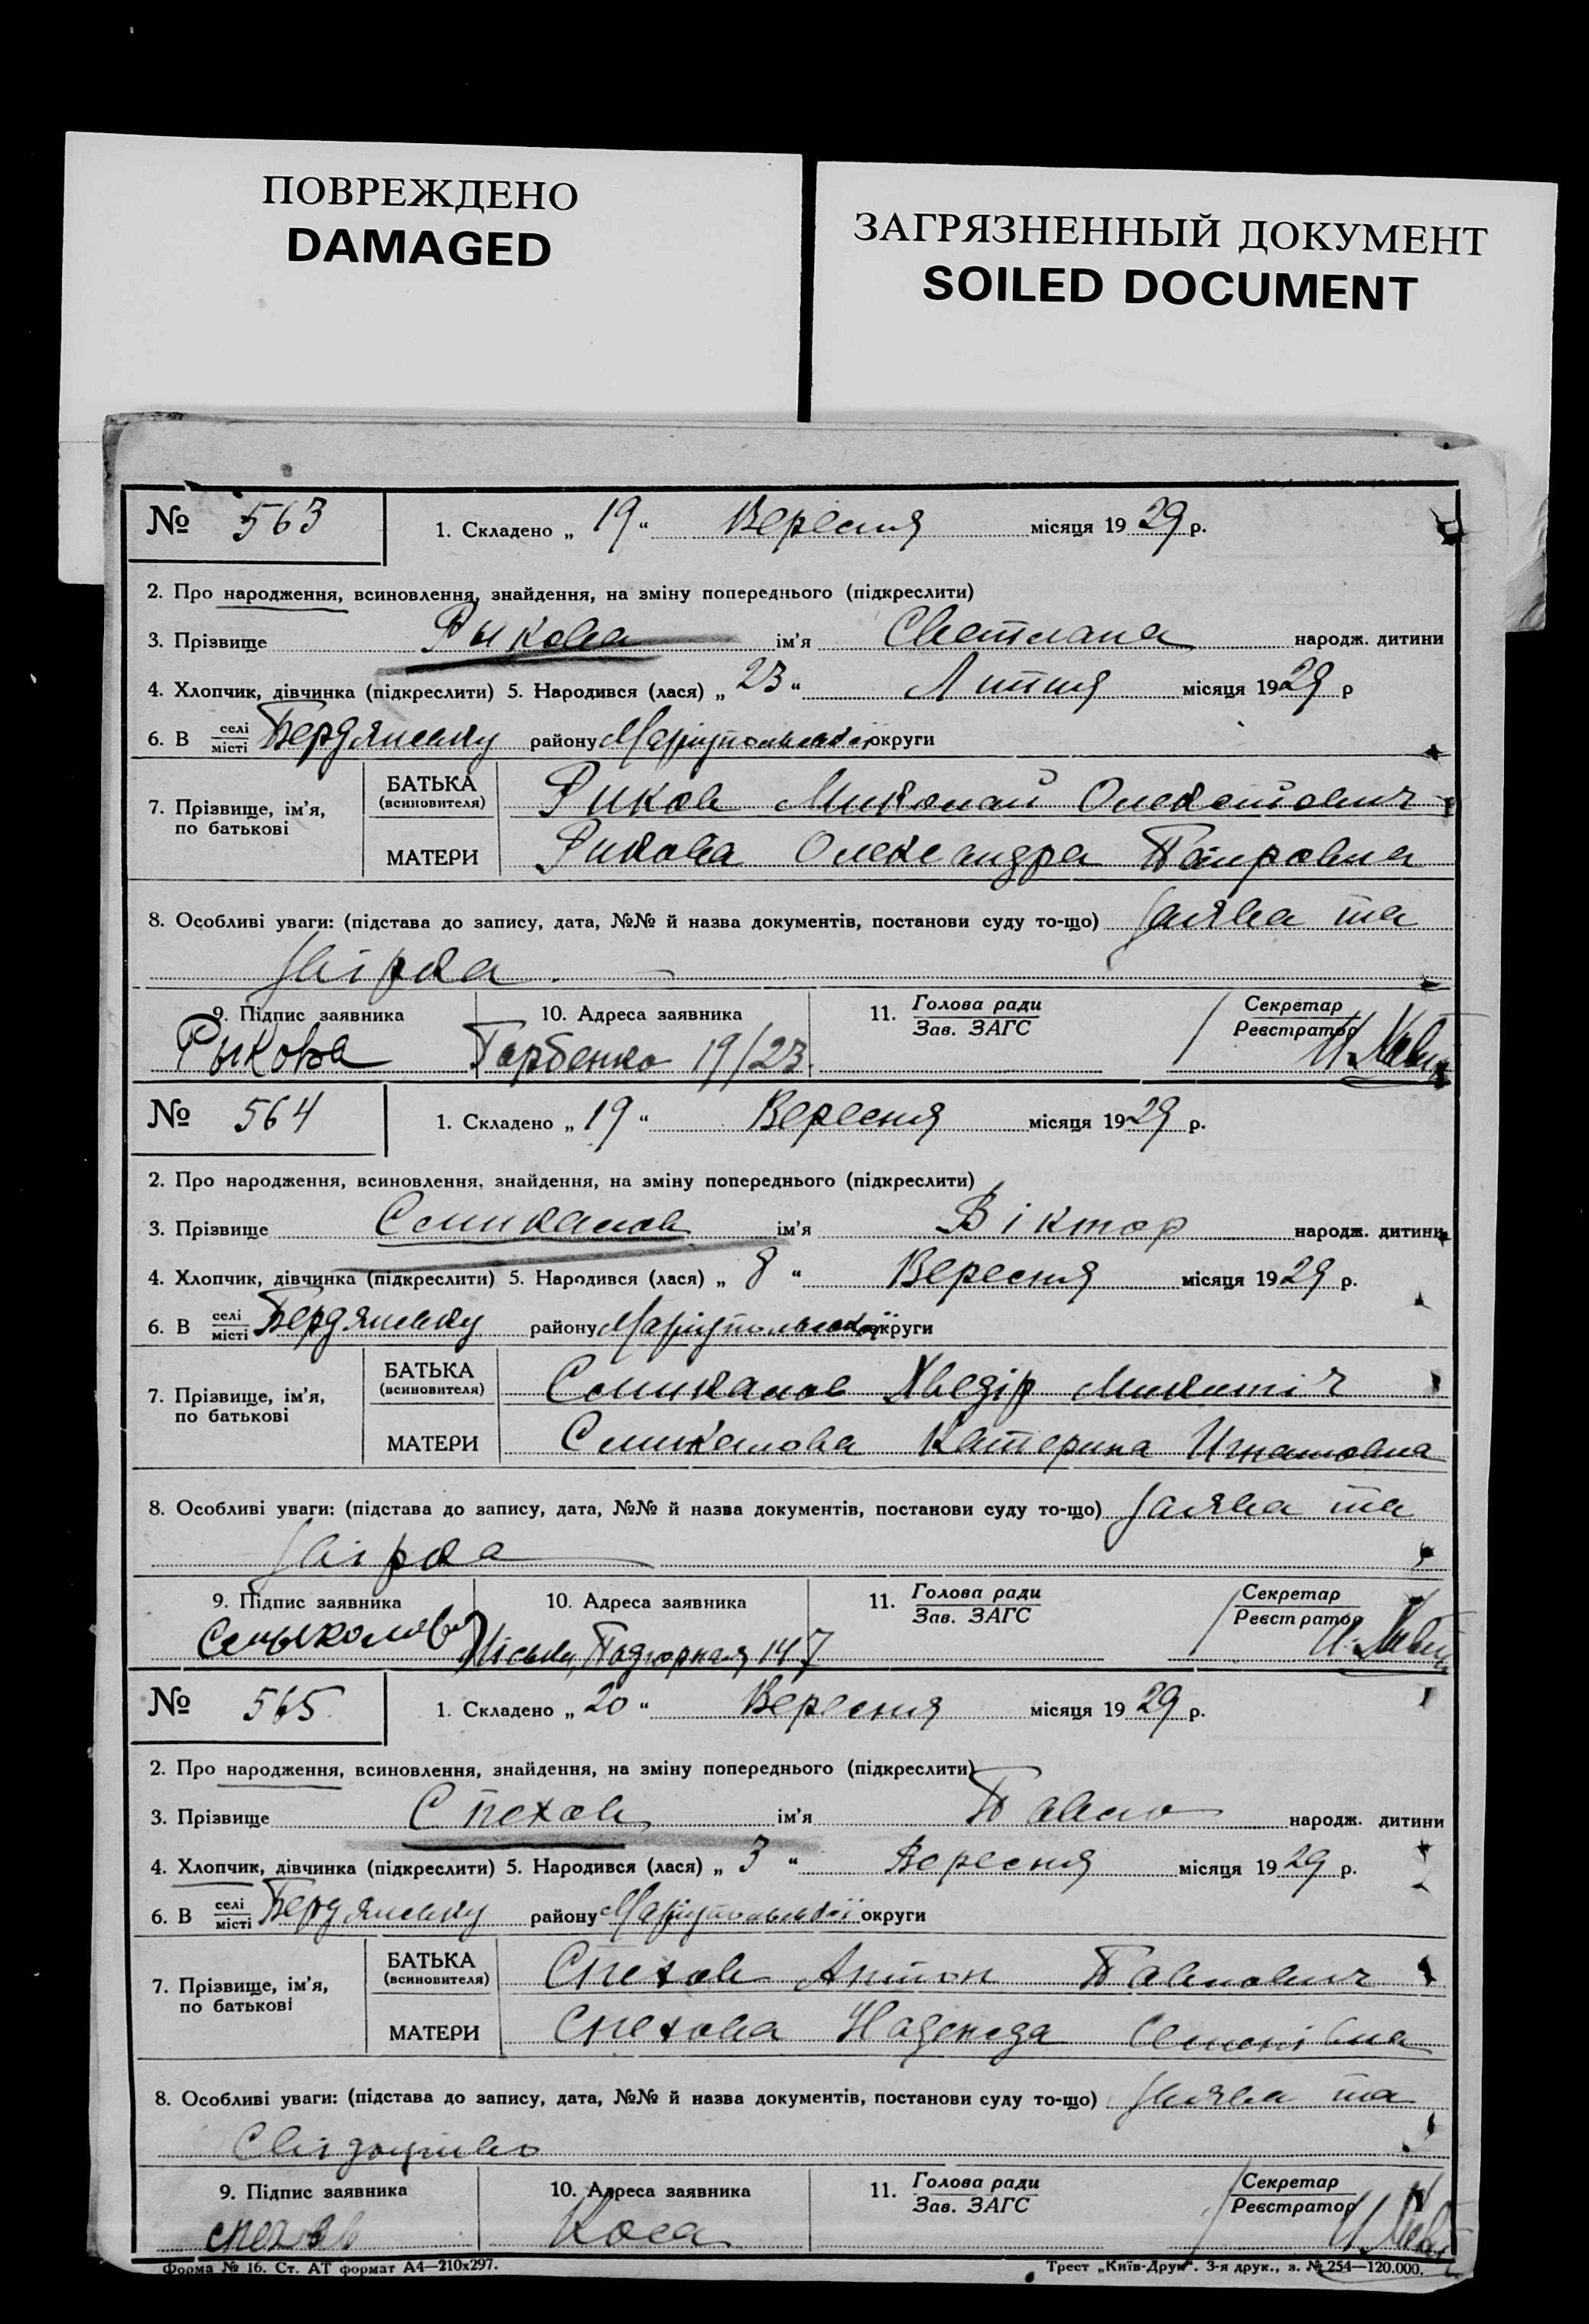 ПОВРЕЖДЕНО
DAMAGED
ЗАГРЯЗНЕННЫЙ ДОКУМЕНТ
SOILED DOCUMENT
№ 563 1. Складено „ 19 “ Вересня місяця 19 29 р.
2. Про народження, всиновлення, знайдення, на зміну попереднього (підкреслити)
3. Прізвище Рыкова ім’я Светлана народж. дитини
4. Хлопчик, дівчинка (підкреслити) 5. Народився (лася) „ 23 “ Липня місяця 19 29 р
6. В селі місті Бердянську району Маріупольської округи
7. Прізвище, ім’я, по батькові
БАТЬКА (всиновителя) Риков Миколай Олексійович
МАТЕРИ Рикова Олександра Петровна
8. Особливі уваги: (підстава до запису, дата, №№ й назва документів, постанови суду то-що) Заява та
звірка
9. Підпис заявника 10. Адреса заявника 11. Голова ради Зав. ЗАГС Секретар Реєстратор
Рыкова Горбенко 19/23
№ 564 1. Складено „ 19 “ Вересня місяця 19 29 р.
2. Про народження, всиновлення, знайдення, на зміну попереднього (підкреслити)
3. Прізвище ім’я Віктор народж. дитини
4. Хлопчик, дівчинка (підкреслити) 5. Народився (лася) „ 8 “ Вересня місяця 19 29 р.
6. В селі місті Бердянську району Маріупольської округи
7. Прізвище, ім’я, по батькові
БАТЬКА (всиновителя) Хведір
МАТЕРИ Катерина
8. Особливі уваги: (підстава до запису, дата, №№ й назва документів, постанови суду то-що) Заява та
звірка
9. Підпис заявника 10. Адреса заявника 11. Голова ради Зав. ЗАГС Секретар Реєстратор
Подгорная 147
№ 565 1. Складено „ 20 “ Вересня місяця 19 29 р.
2. Про народження, всиновлення, знайдення, на зміну попереднього (підкреслити)
3. Прізвище Спехов ім’я Павло народж. дитини
4. Хлопчик, дівчинка (підкреслити) 5. Народився (лася) „ 3 “ Вересня місяця 19 29 р.
6. В селі місті Бердянську району Маріупольської округи
7. Прізвище, ім’я, по батькові
БАТЬКА (всиновителя) Спехов Антон Павлович
МАТЕРИ Спехова Надежда
8. Особливі уваги: (підстава до запису, дата, №№ й назва документів, постанови суду то-що) Заява та
Свідоцтво
9. Підпис заявника 10. Адреса заявника 11. Голова ради Зав. ЗАГС Секретар Реєстратор
спехов Коса
Форма № 16. Ст. АТ формат А4—210х297. Трест „Київ-Друк“. 3-я друк., з. № 254—120.000.